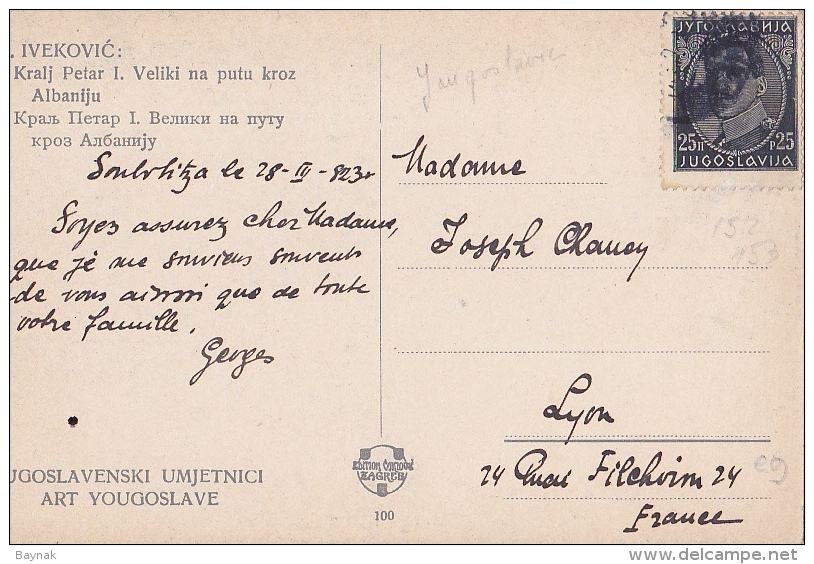 . IVEKOVIĆ:
Kralj Petar I. Veliki na putu kroz
Albaniju
Краљ Петар I. Велики на путу
кроз Албанију
Soubotitza le 28-III-923
Soyez assurez cher Madame,
que je me souviens souvent
de vous aussi que de toute
votre famille.
Georges
UGOSLAVENSKI UMJETNICI
ART YOUGOSLAVE
EDITION
ZAGREB
100
Yougoslavie
ЈУГОСЛАВИЈА
25 П Р 25
JUGOSLAVIJA
Madame
Joseph Chancy
152
153
Lyon
24 Quai 24
France
Baynak
www.delcampe.net